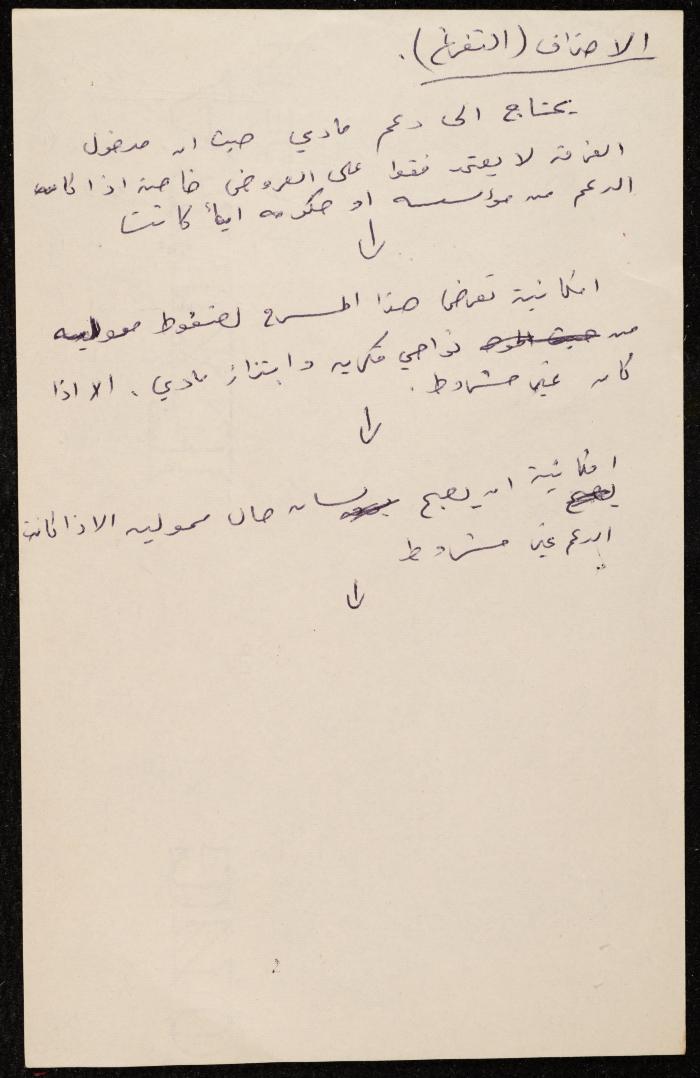 الاحتراف (التفرغ).
يحتاج الى دعم مادي حيث ان مدخول
الفرقة لا يعتمد فقط على العروض خاصة اذا كان
الدعم من مؤسسه او حكومه اياً كانت
امكانية تعرض هذا المسرح لضغوط مموليه
من حيث نواحي فكريه وابتزاز مادي. الا اذا
كان غير مشروط.
امكانية ان يصبح لسان حال مموليه الا اذا كانت
يصبح
الدعم غير مشروط